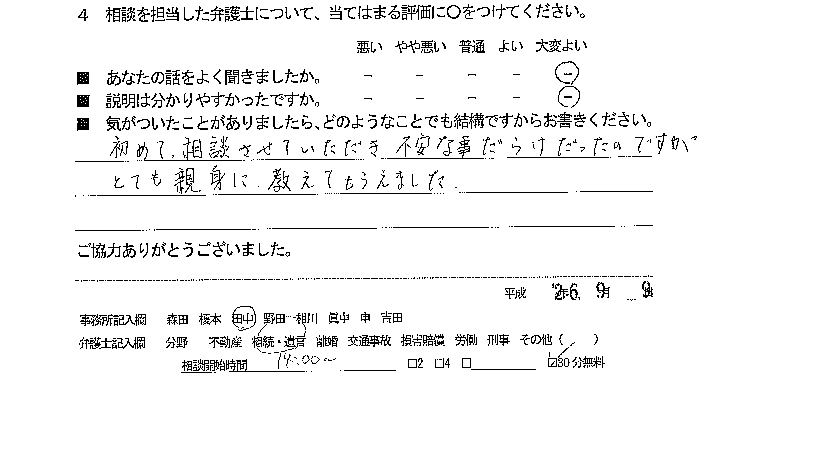 4 相談を担当した弁護士について、当てはまる評価に○をつけてください。
悪い やや悪い 普通 よい 大変よい
■ あなたの話をよく聞きましたか。 － － － － －
■ 説明は分かりやすかったですか。 － － － － －
■ 気がついたことがありましたら、どのようなことでも結構ですからお書きください。
初めて、相談させていただき 不安な事だらけだったのですが
とても親身に、教えてもらえました。
ご協力ありがとうございました。
平成 26年 9月 9日
事務所記入欄 森田 榎本 田中 野田 相川 眞中 申 吉田
弁護士記入欄 分野 不動産 相続・遺言 離婚 交通事故 損害賠償 労働 刑事 その他（ ）
相談開始時間 14:00～ □2 □4 □ ☑30分無料